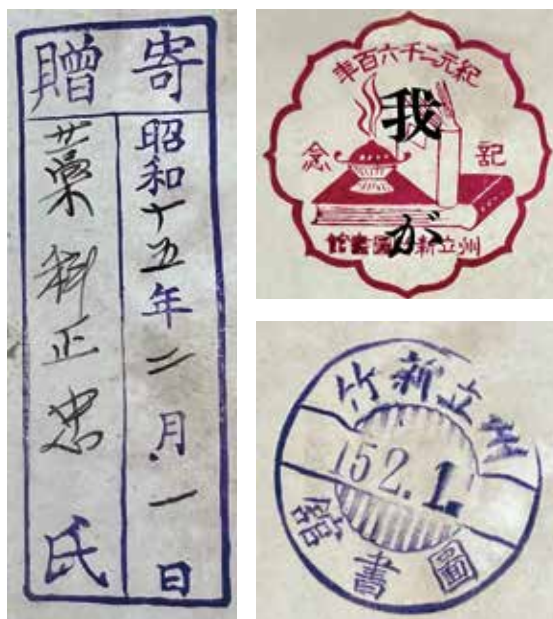 寄贈
昭和十五年二月一日
藁科正忠氏
紀元二千六百年
記念
我が
州立新 圖書館
州立新竹
15.2.1.
圖書館